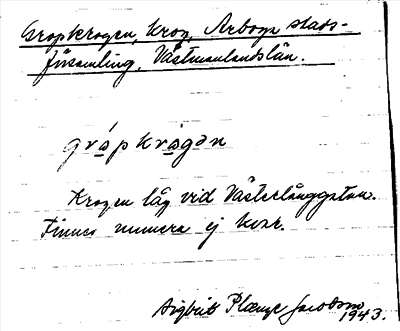 Gropkrogen, krog, Arboga stads-
församling, Västmanlands län.
grópkrògən
Krogen låg vid Västerlånggatan.
Finnes numera ej kvar.
Sigbrit Plænge Jacobson
1943.